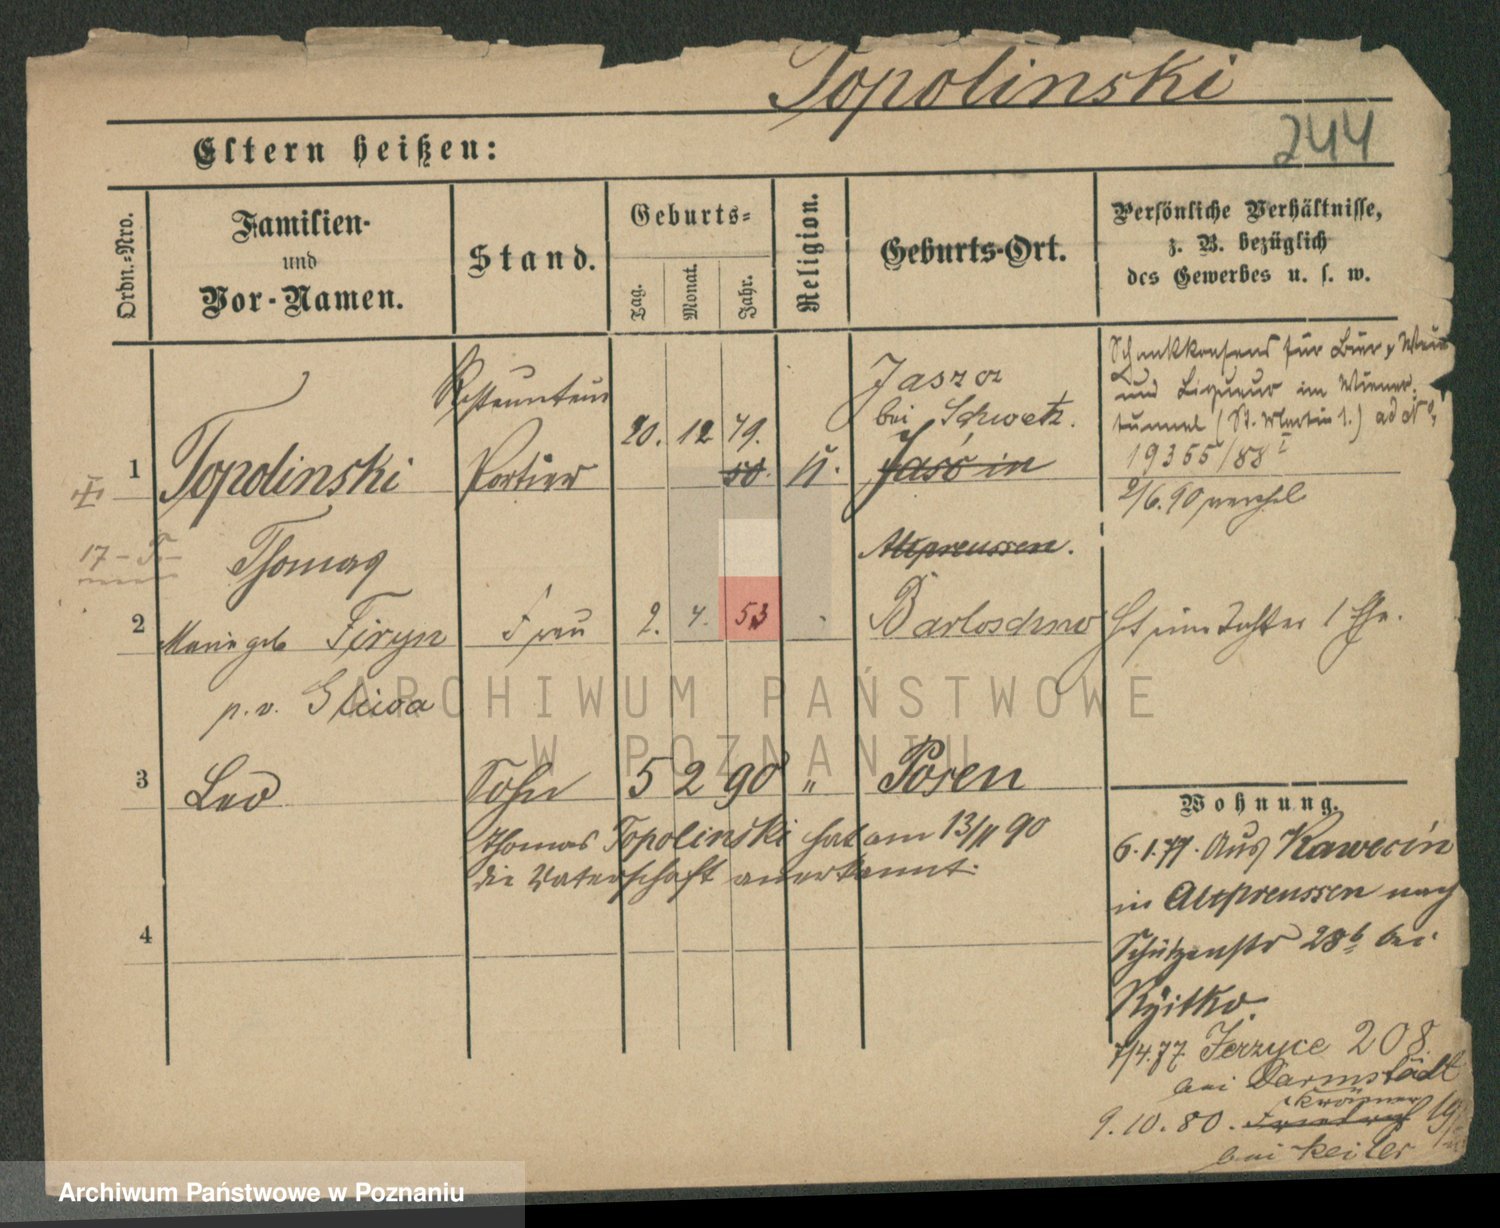 Topolinski
244
Eltern heißen:
Ordn.-Nro.
Familien-
und
Vor-Namen.
Stand.
Geburts-
Tag.
Monat.
Jahr.
Religion.
Geburts-Ort.
Persönliche Verhältnisse,
z. B. bezüglich
des Gewerbes u. s. w.
Restaurateur
Jaszcz
bei Schwetz.
Schankkonsens für Bier, Wein
und Liqueur im Wiener
tunnel (St. Martin 1.) ad No
19355/88 I
1 Topolinski Portier 20. 12 49. 50. k. Jasóin
2/6.90
17-
Thomas
Altpreussen.
2 Marie geb Firyn Frau 2. 4. 53 Barloschno
p. v. Sliwa
3 Leo Sohn 5 2 90 " Posen
Thomas Topolinski hat am 13/11 90
die Vaterschaft anerkannt.
4
Wohnung.
6.1.77. Aus Kawecin
in Altpreussen nach
Schützenstr 28b bei
Kyitko.
7/4.77 Jerzyce 208
bei Darmstädt
9.10.80. 19
bei Keiler
ARCHIWUM PAŃSTWOWE
W POZNANIU
Archiwum Państwowe w Poznaniu